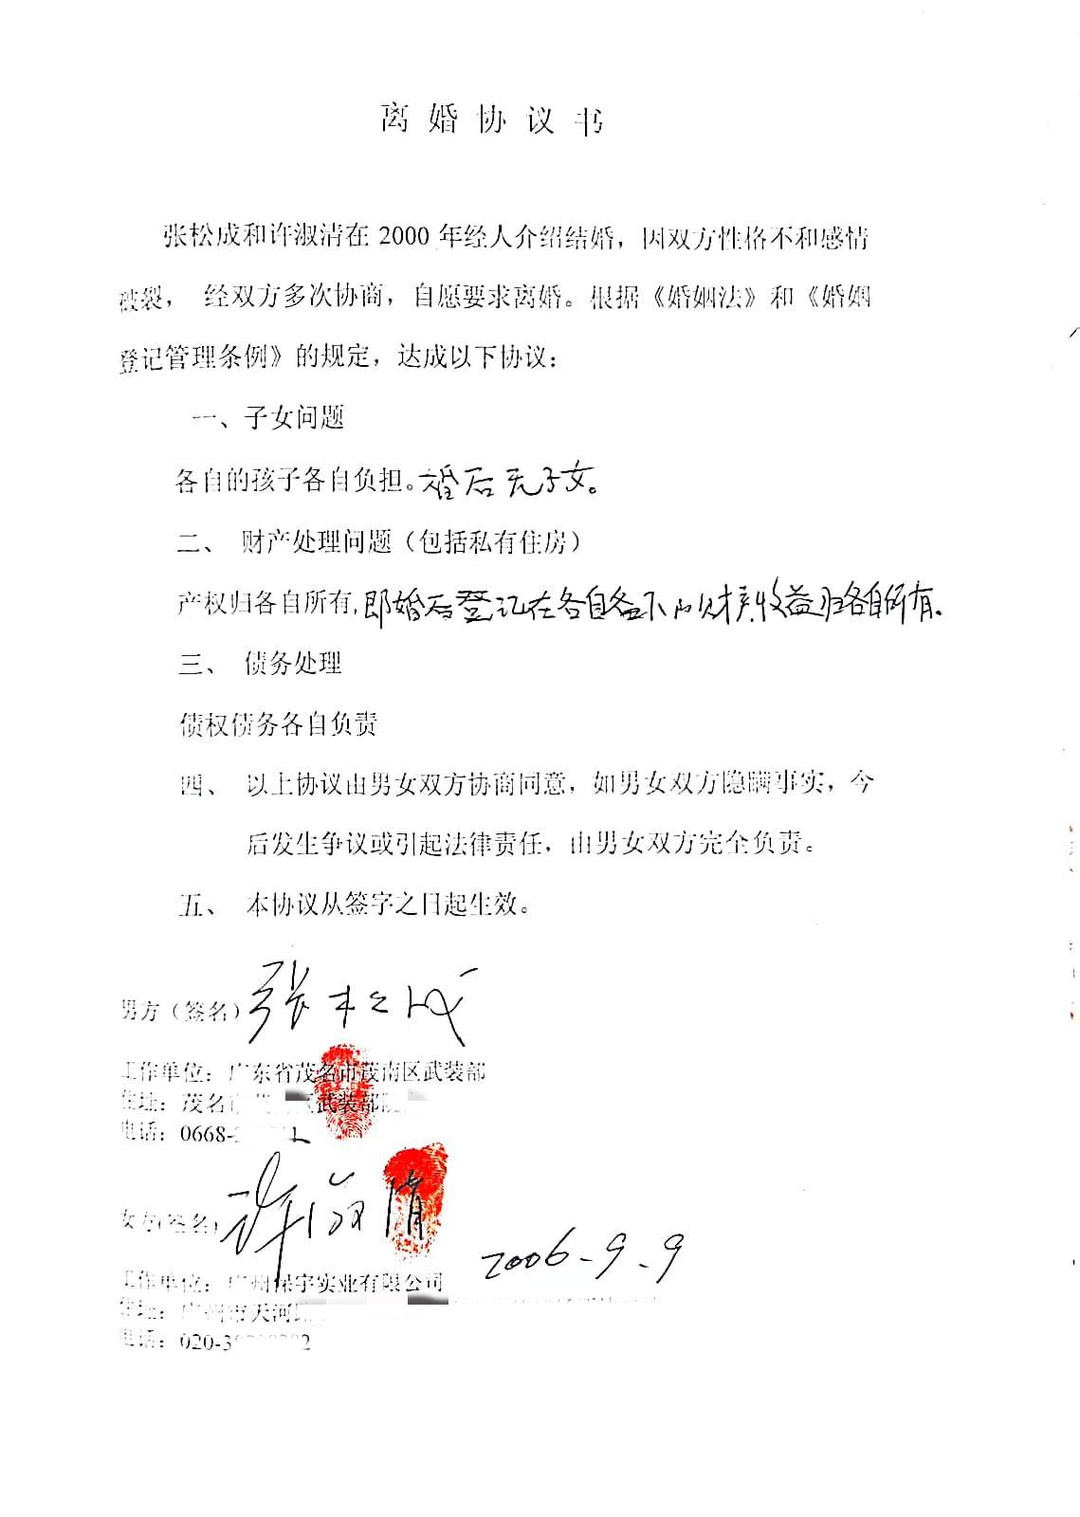 离婚协议书
张松成和许淑清在 2000 年经人介绍结婚，因双方性格不和感情
破裂， 经双方多次协商，自愿要求离婚。根据《婚姻法》和《婚姻
登记管理条例》的规定，达成以下协议：
一、子女问题
各自的孩子各自负担。婚后无子女。
二、 财产处理问题（包括私有住房）
产权归各自所有,即婚后登记在各自名下的财产收益归各自所有。
三、 债务处理
债权债务各自负责
四、 以上协议由男女双方协商同意，如男女双方隐瞒事实，今
后发生争议或引起法律责任，由男女双方完全负责。
五、 本协议从签字之日起生效。
男方（签名）张松成
工作单位：广东省茂名市茂南区武装部
住址：茂名市 区武装部
电话：0668-
女方(签名) 许淑清
2006-9.9
工作单位：广州保宇实业有限公司
住址：广州市天河
电话：020-3